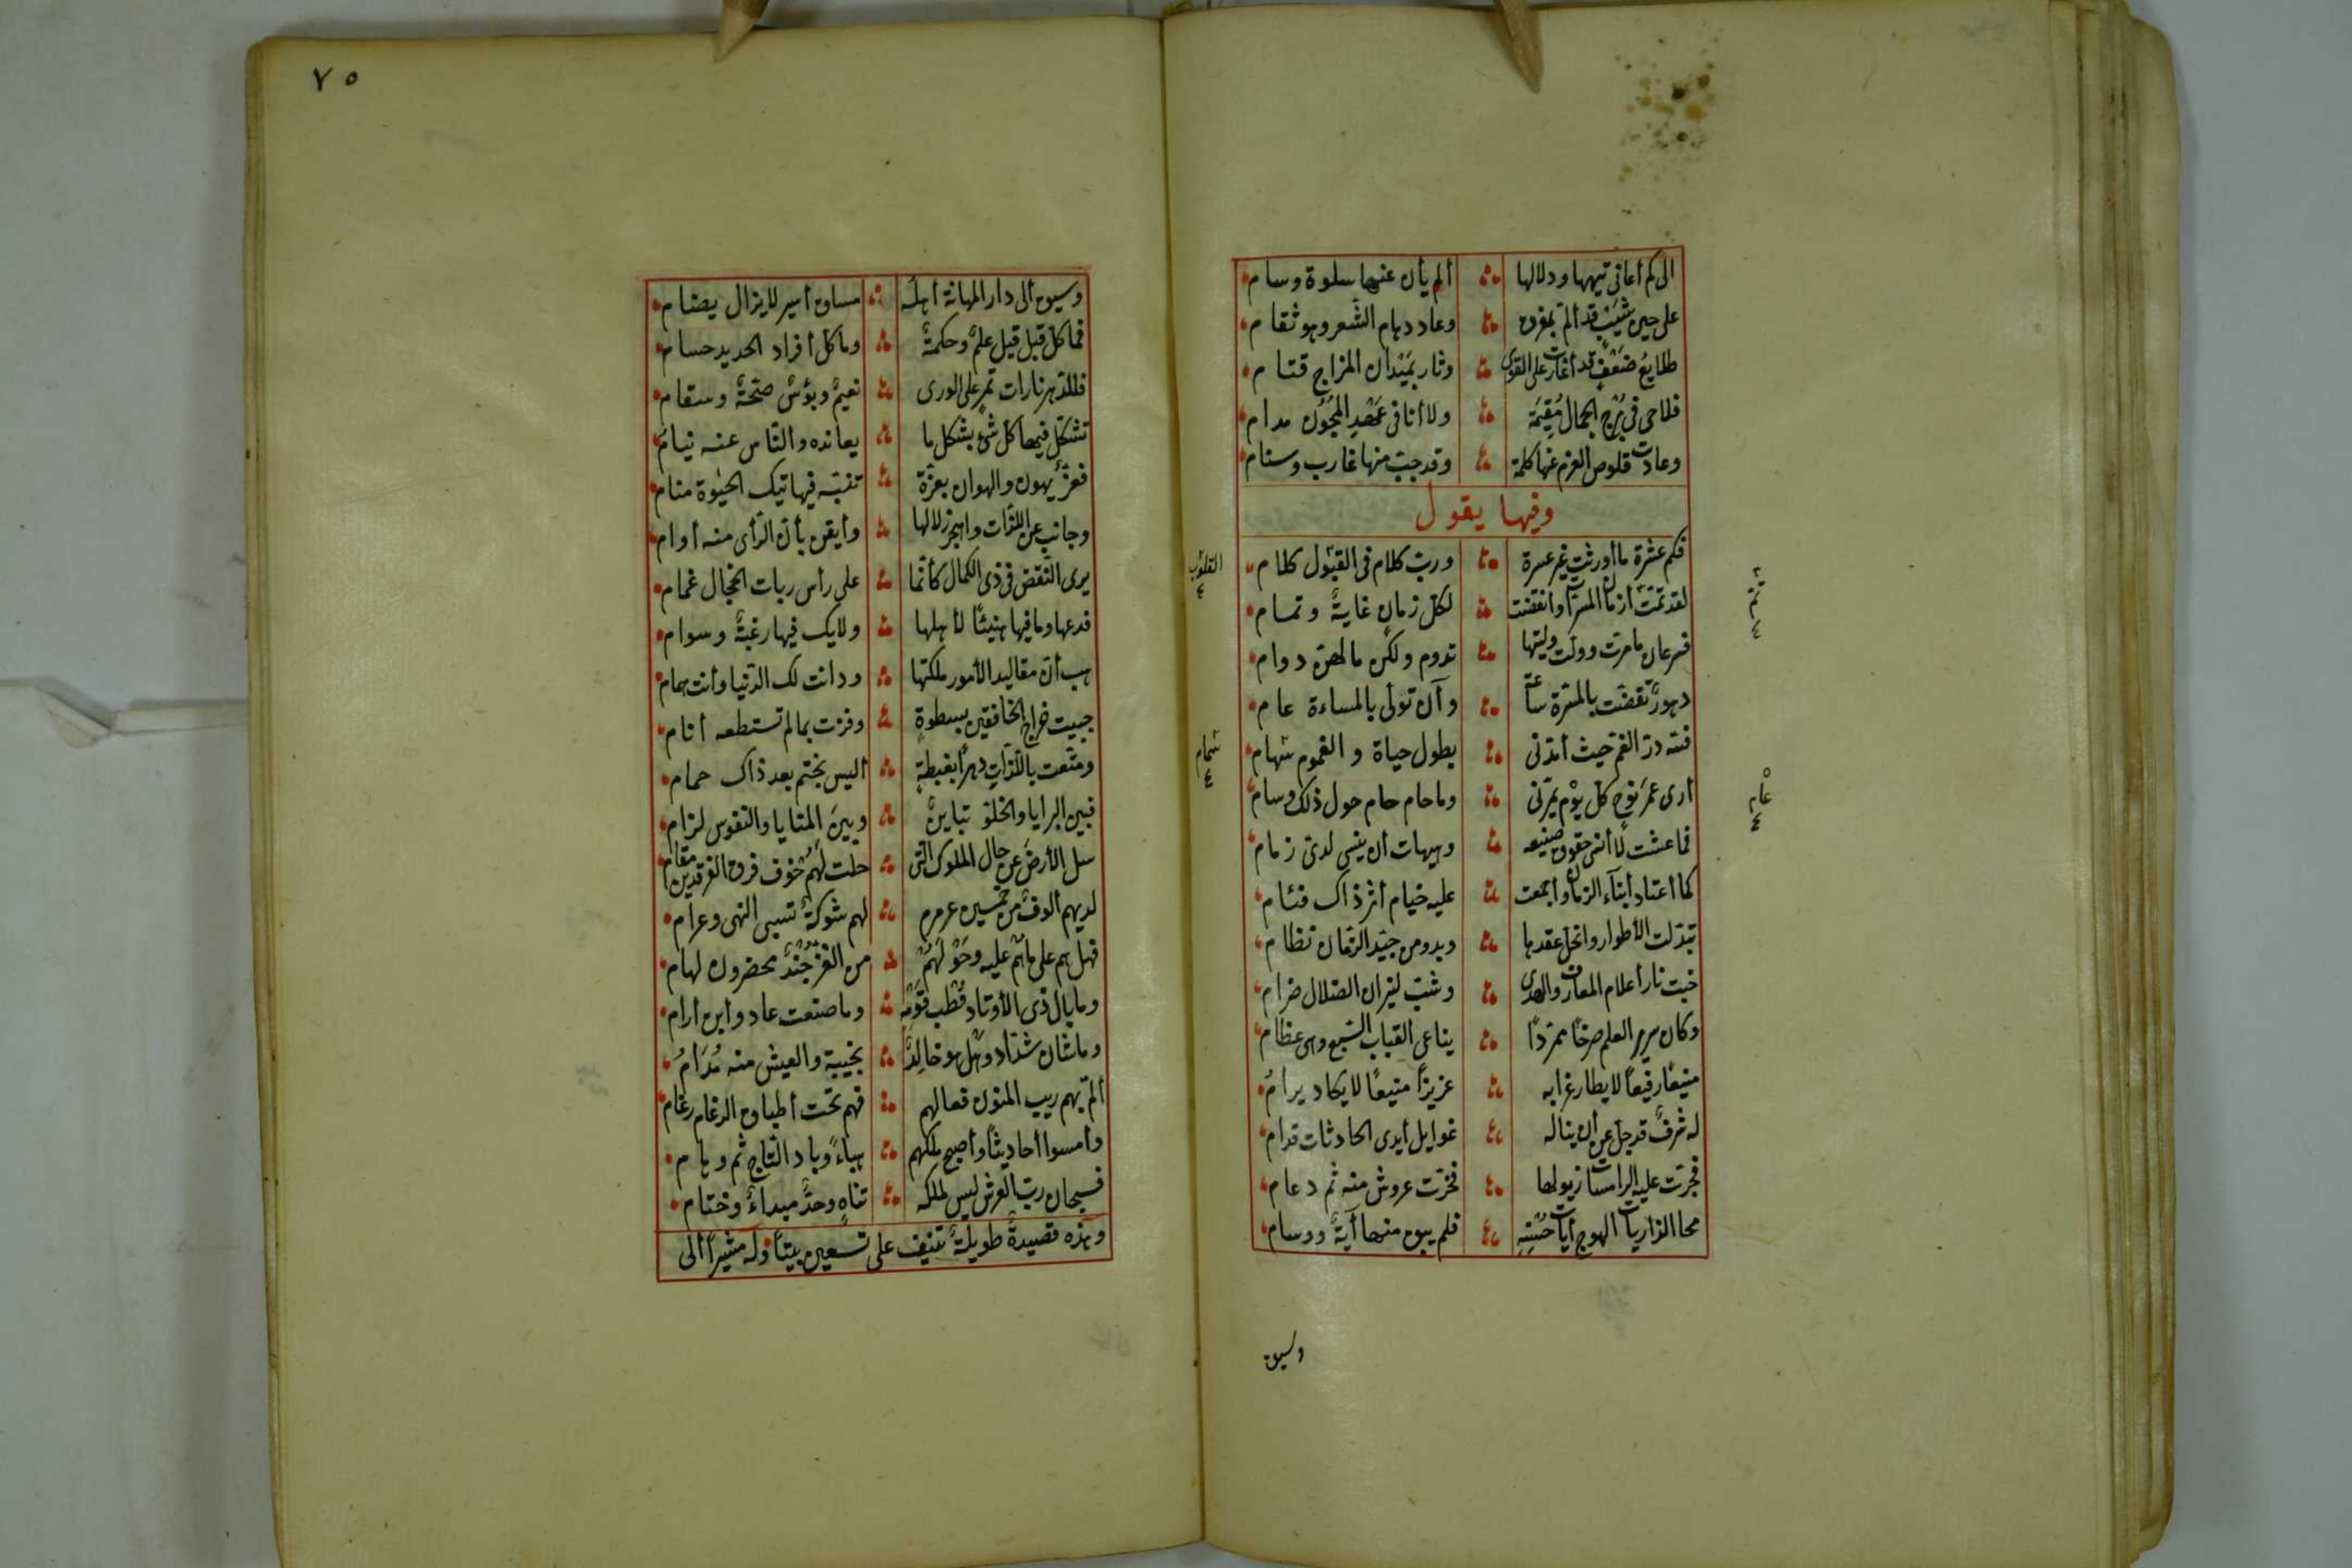 الى كم أعانى تيهها ودلالها ألم يأن عنها سلوة وسام
على حين شيب قد ألم بمفرق وعاد دهام الشعر وهو ثغام
طلايع ضعف قد أغارت على القوى وثار بميدان المزاج قتام
فلا هى فى برج الجمال مقيمة ولا أنا فى عهد المجون مدام
وعادت قلوص العزم عنها كليمة وقد جب منها غارب وسنام
وفيها يقول
فكم عشرة ما أورثت غير عسرة ورب كلام فى القلوب كلام
لقد تمت أزمان المسرات وانقضت لكل زمان غاية وتمام
فسرعان ما مرت وولت وليتها تدوم ولكن ما لهن دوام
دهور تقضت بالمسرة ساعة وآن تولى بالمساءة عام
فلله در الغم حيث أمدنى بطول حياة والغموم سهام
أرى عمر نوح كل يوم يمر بى وما حام حام حول ذاك وسام
فما عشت لا أنسى حقوق صنيعه وهيهات أن ينسى لدى زمام
كما أعتاد أبناء الزمان وأجمعت عليه خيام أثر ذاك فئام
تبدلت الأطوار وانحل عقدها وبدد من جيد الزمان نظام
خبت نار أعلام المعارف والهدى وشب لنيران الضلال ضرام
وكان سرير العلم صرحا ممردا يناغى القباب السبع وهى عظام
منيعا رفيعا لا يطار غرابه عزيزا منيعا لا يكاد يرام
له شرف قد جل عن أن يناله غوايل أيدى الحادثات قدام
فجرت عليه الراسيات ذيولها فخرت عروش منه ثم دعام
محا الذاريات الهوج أيات حسنه فلم يبق منها آية ووسام
القلوب
٤
شهام
٤
عام
٤
وسيق
٧٥
وسيق ألى دار المهانة أهله مساق أسير لا يزال يضام
فما كل قيل قيل علم وحكمة وما كل أفراد الحديد حسام
فللدهر تارات تمر على الورى نعيم وبؤس صحة وسقام
تشكل فيها كل شئ بشكل ما يعانده والناس عنه نيام
فعز يهون والهوان بعزة تنبه فهاتيك الحيوة منام
وجانب عن اللذات واهجر زلالها وأيقن بأن الرأى منه أوام
يرى النقص فى ذى الكمال كأنما على رأس ربات الحجال غمام
فدعها وما فيها هنيئا لأهلها ولا يك فيها رغبة وسوام
هب أن مقاليد الأمور ملكتها ودانت لك الدنيا وأنت همام
جبيت خراج الخافقين بسطوة وفزت بما لم تستطعه أنام
ومتعت باللذات دهرا بغبطة أليس بختم بعد ذاك حمام
فبين البرايا والخلود تباين وبين المنايا والنفوس لزام
سل الأرض عن حال الملوك التى خلت لهم فوق فرق الفرقدين مقام
لديهم ألوف من خميس عرمرم لهم شوكة تسبى النهى وعرام
فهل هم على ما هم عليه وحولهم من الغز جند محضرون لهام
وما بال ذى الأوتاد قطب قومه وما صنعت عاد وأين أرام
وما شان شداد وهل هو خالد بخيبة والعيش منه مدام
ألم بهم ريب المنون فعالهم فهم تحت أطباق الرغام رغام
وأمسوا أحاديثا وأصبح ملكهم هباء وباد التاج ثم وهام
فسبحان رب العرش ليس لملكه تناه وحد مبداء وختام
وهذه قصيدة طويلة تنيف على تسعين بيتا وله مشيرا ألى